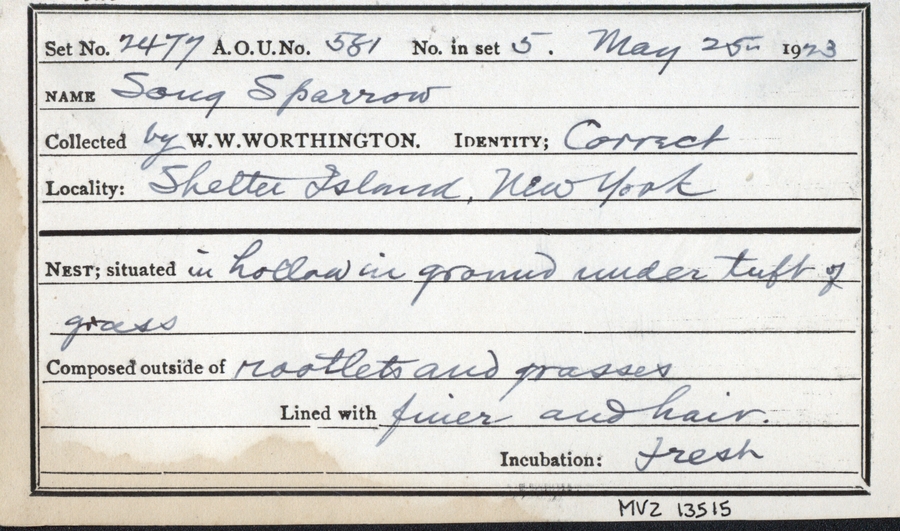 Set No. 2477 A.O.U.No. 581 No. in set 5. May 25 1923
NAME Song Sparrow
Collected by W.W.WORTHINGTON. IDENTITY; Correct
Locality: Shelter Island, New York
NEST; situated in hollow in ground under tuft of
grass
Composed outside of rootlets and grasses
Lined with finer and hair.
Incubation: Fresh
MVZ 13515